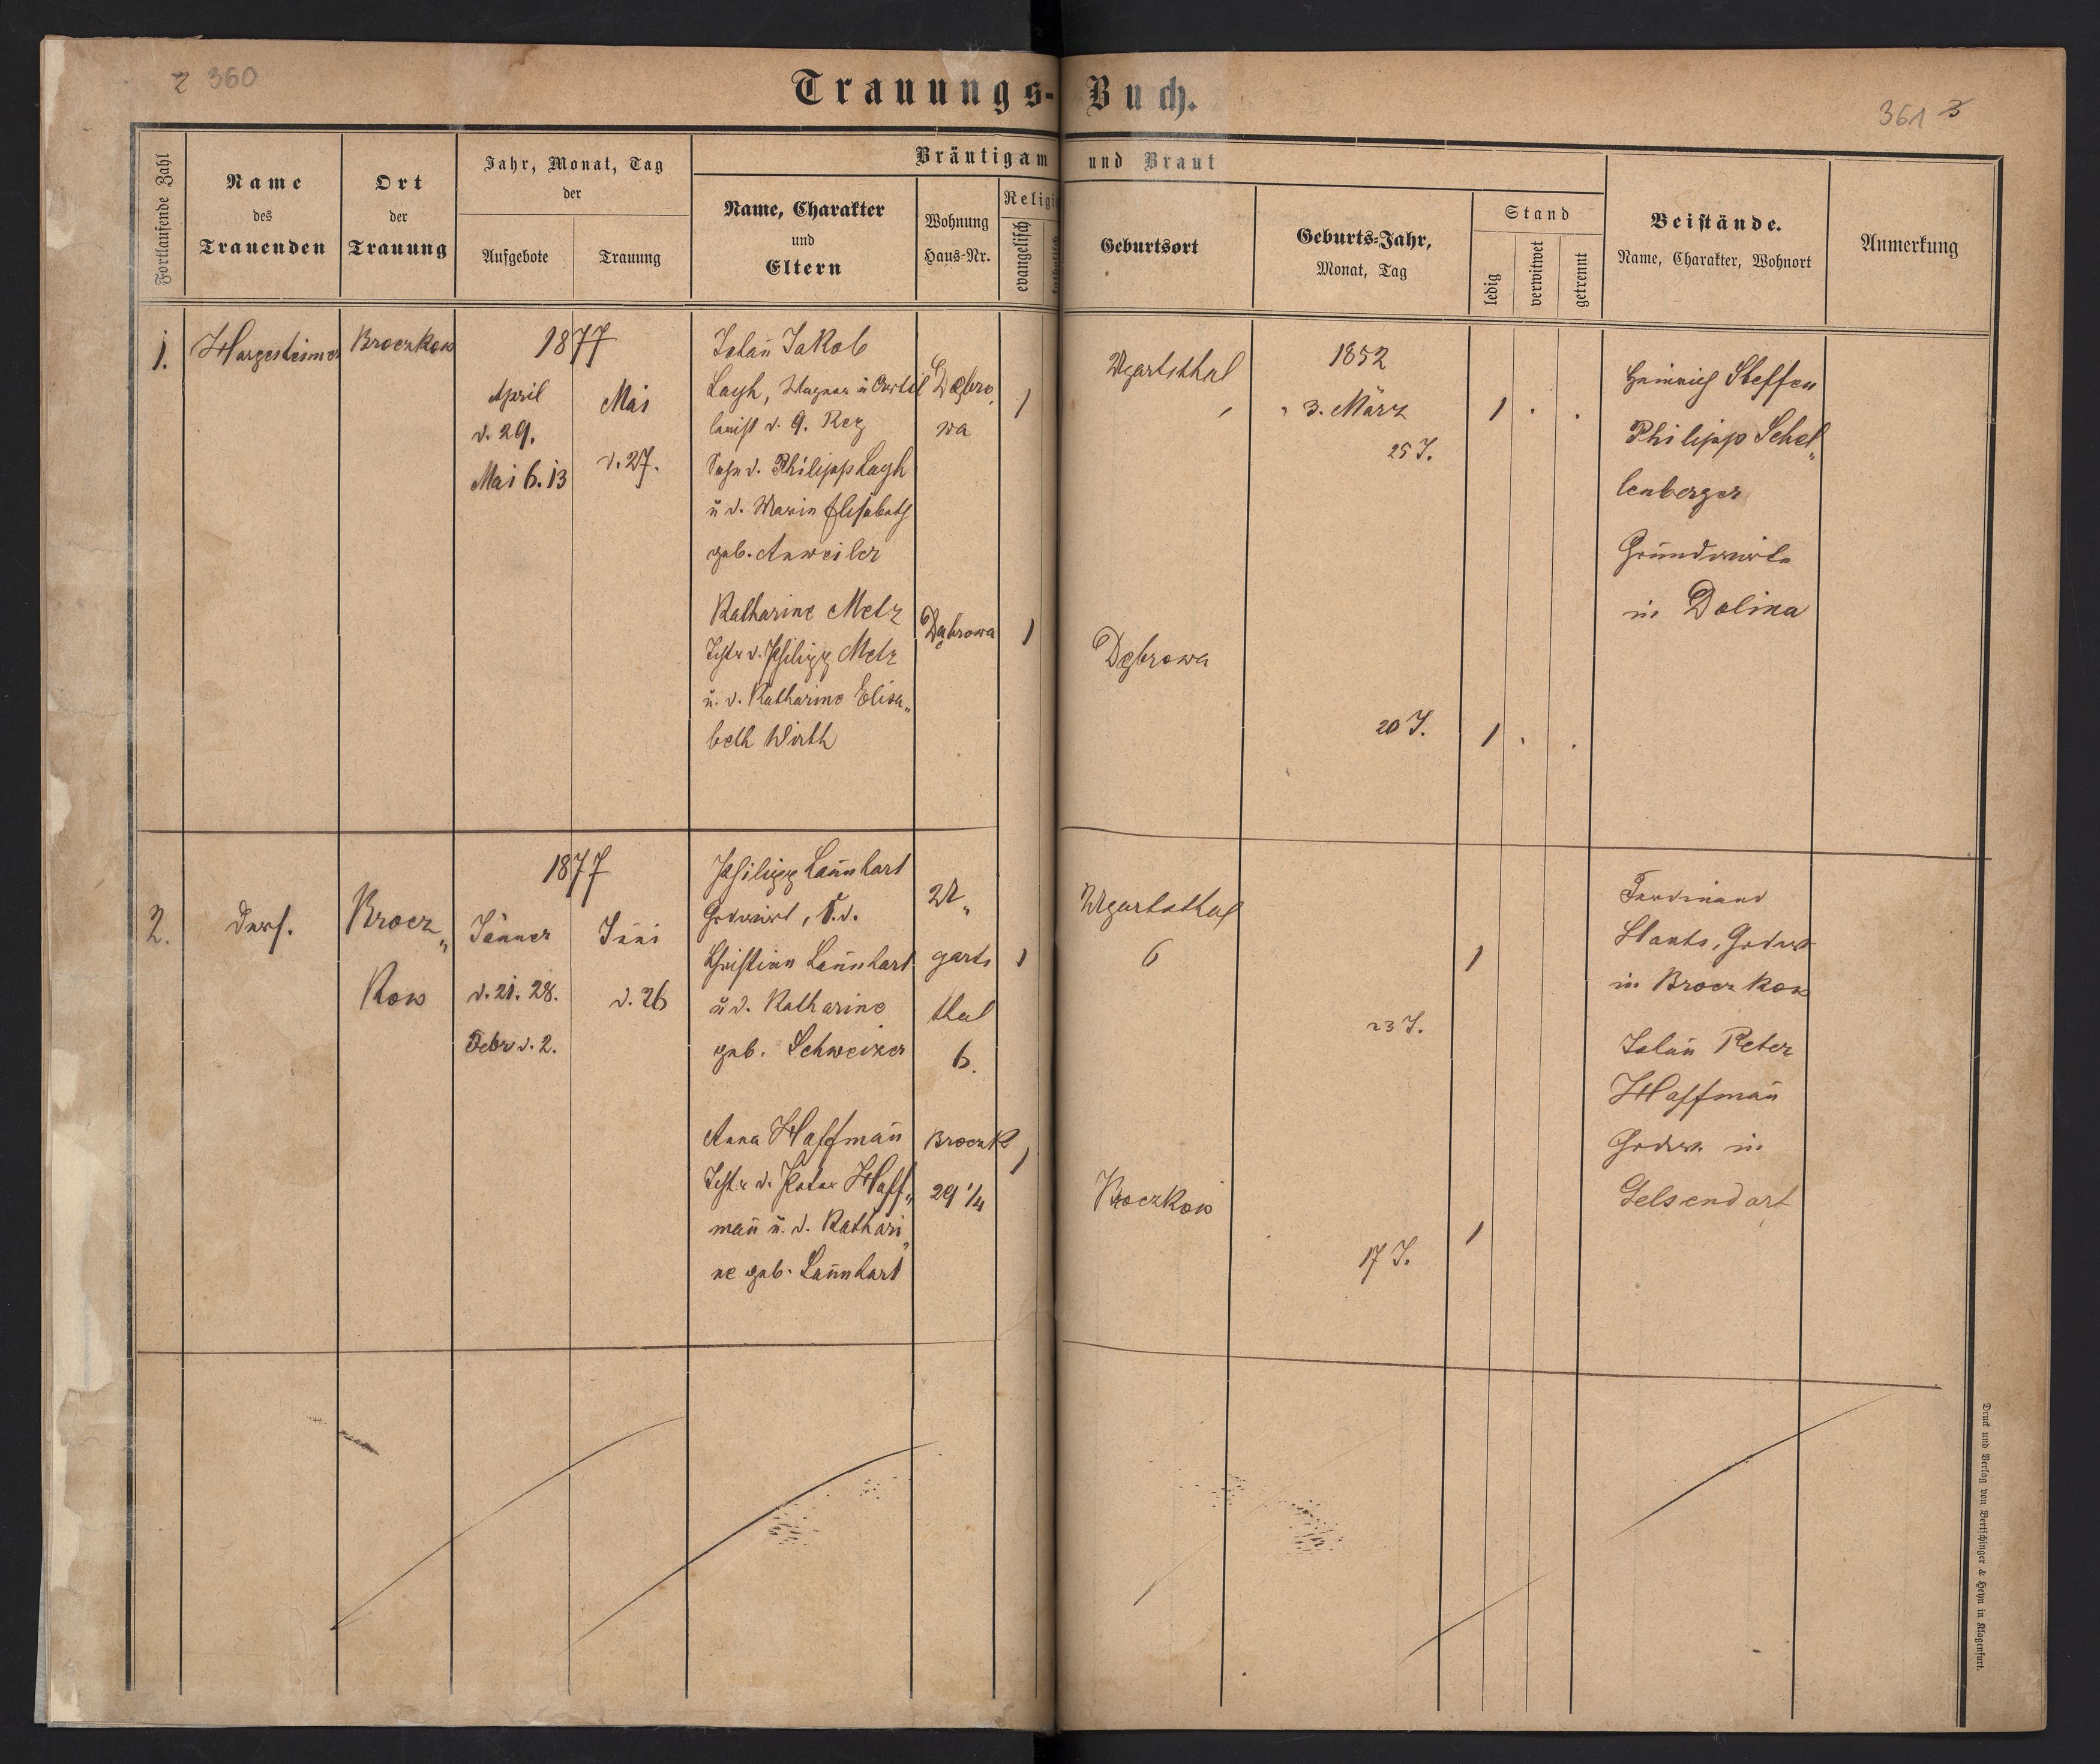 2 360
Trauungs-Buch.
361 3
Fortlaufende Zahl
Name
des
Trauenden
Ort
der
Trauung
Jahr, Monat, Tag
der
Aufgebote
Trauung
Bräutigam und Braut
Name, Charakter
und
Eltern
Wohnung
Haus-Nr.
evangelisch
Geburtsort
Geburts-Jahr,
Monat, Tag
Stand
ledig
verwitwet
getrennt
Beistände.
Name, Charakter, Wohnort
Anmerkung
1.
Hargesheimer
Broczkow
1877
April
d. 29.
Mai 6. 13
Mai
d. 27.
Johañ Jakob
Layh,
d. 9. Reg
Sohn d. Philipp Layh
ŭ d. Maria Elisabeth
geb. Anweiler
Dębro
wa
1
Ugartsthal
1852
3. März
25 J.
1 . .
Heinrich Steffen
Philipp Schel„
lenberger
Grŭndwirte
in Dolina
Katharine Metz
Tcht. d. Philipp Metz
ŭ. d. Katharine Elisa„
beth Wirth
Dąbrowa
1
Dębrowa
20 J.
1 . .
2.
Ders.
Brocz„
kow
1877
Jänner
d. 21. 28.
Febr d. 2.
Jŭni
d. 26
Philipp Laŭnhart
Grdwirt, S. d.
Christian Laŭnhart
ŭ d. Katharine
geb. Schweizer
U„
garts
thal
6.
1
Ugartsthal
6
23 J.
1
Ferdinand
Hants, Grdwt
in Broczkow
Johañ Peter
Haffmañ
Grdw. in
Gelsendorf
Anna Haffmañ
Tcht. d. Peter Haff„
mañ ŭ. d. Kathari„
ne geb. Laŭnhart
Broczk
29 1/4
1
Broczkow
17 J.
1
Druck und Verlag von Bertschinger & Heyn in Klagenfurt.